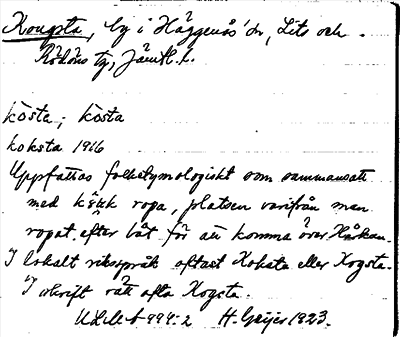 Kougsta, by i Häggenås sn, Lits och
Rödöns tg, Jämtl. l.
kösta; kòsta
koksta 1916
Uppfattas folketymologiskt som sammansatt
med kɑ̀uk ropa, platsen varifrån man
ropat efter båt för att komma över Hårkan.
I lokalt riksspråk oftast Koksta eller Kogsta.
I skrift rätt ofta Kogsta.
ULMA 994:2 H. Geijer 1923.